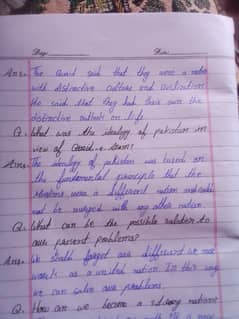 Day:
Date:
Ans:- The Quaid said that they were a nation
with distinctive culture and civilization
He said that they had their own the
distinctive outlook on life.
Q. What was the ideology of pakistan in
view of Quaid-e-Azam?
Ans:- The ideology of pakistan was based on
the fundamental principle that the
Muslims were a different nation and could
not be merged with any other nation
Q. What can be the possible solution to
our present problems?
Ans:- We should forget our differences
work as a united nation. In this way
we can solve our problems.
Q. How can we become a strong nation?